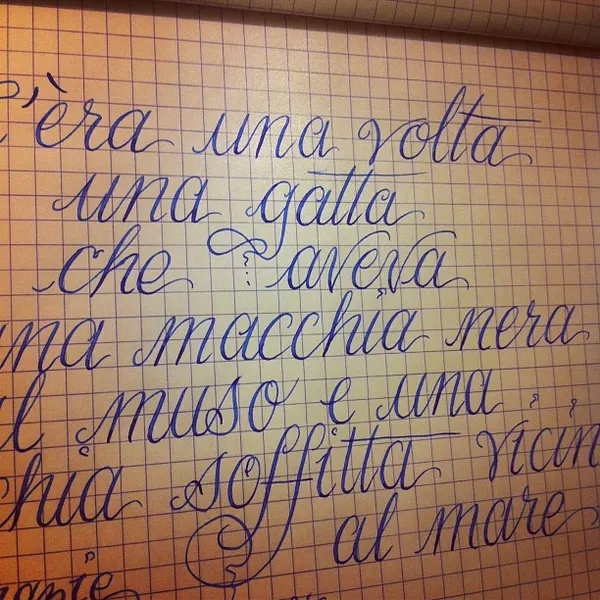 c'èra una volta
una gatta
che aveva
una macchia nera
al muso e una
chia soffitta vicin
al mare